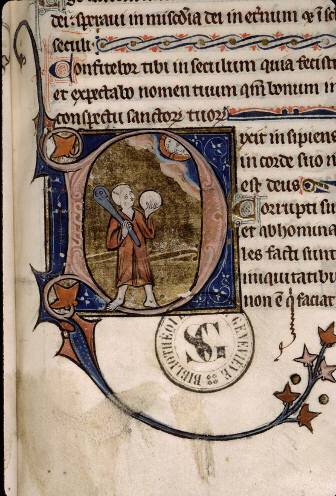 dei: speraui in mis̃cõia dei in et̃num
seculi:
Confitebor tibi in seculum quia fecisti
et expectabo nomen tuum qm̃ bonum in
conspectu sanctoꝝ tuoꝝ
Dixit insipiens
in corde suo
est deus
Corrupti su
et abhomina
les facti sunt
iniquitatibu
non ẽ q̃ faciat
BIBLIOTHÈQUE Ste GENEVIEVE
SG